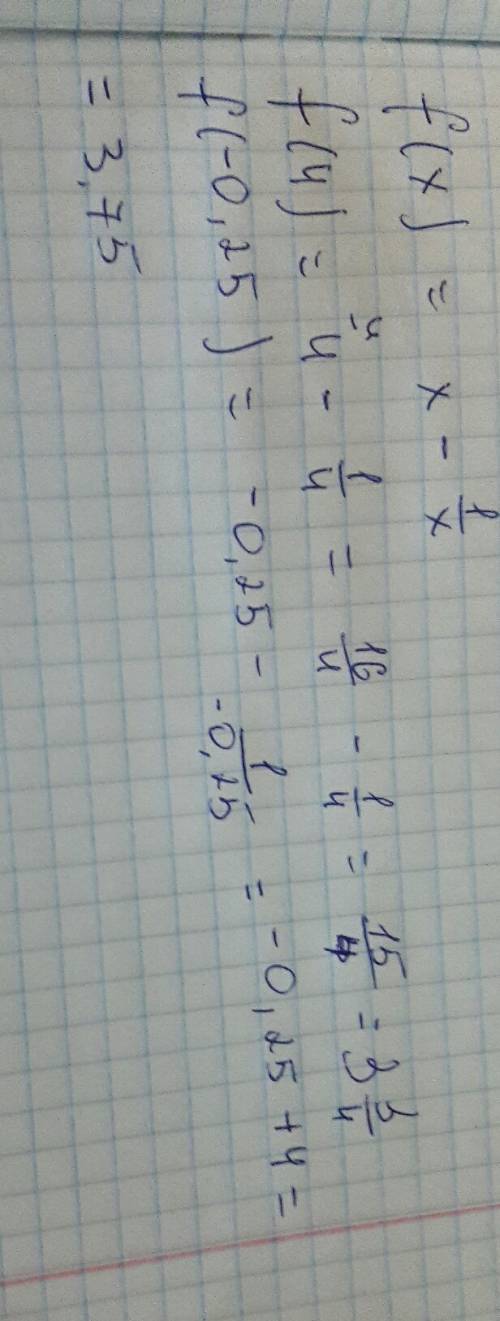 f(x) = x - 1/x
f(4) = 4^4 - 1/4 = 16/4 - 1/4 = 15/4 = 3 3/4
f(-0,25) = -0,25 - 1/-0,25 = -0,25 + 4 =
= 3,75